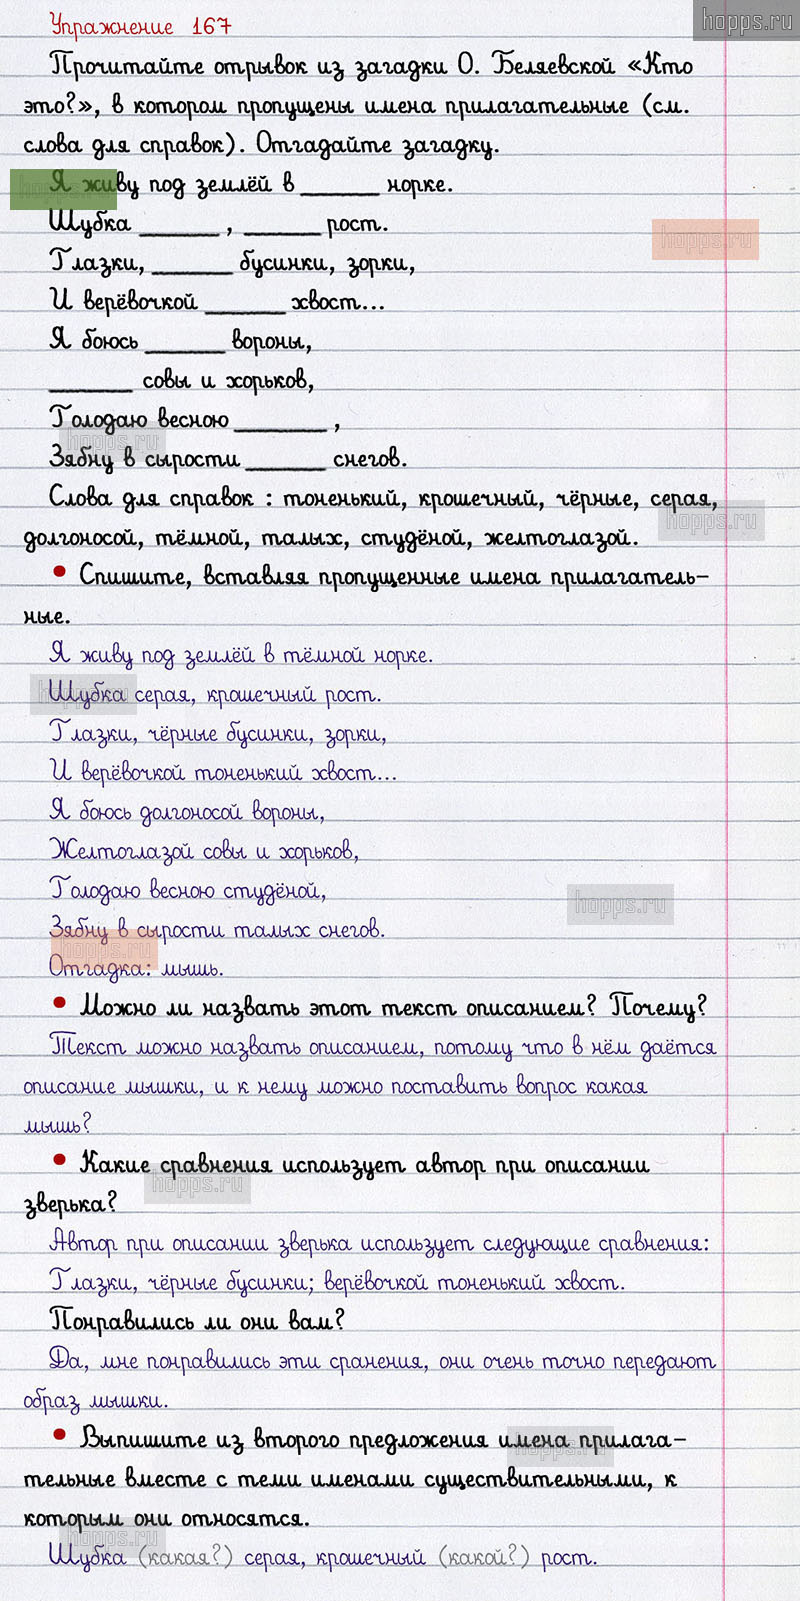 hopps.ru
Упражнение 167
Прочитайте отрывок из загадки О. Беляевской «Кто
это?», в котором пропущены имена прилагательные (см.
слова для справок). Отгадайте загадку.
Я живу под землёй в ______ норке.
Шубка ______, ______ рост.
Глазки, ______ бусинки, зорки,
И верёвочкой ______ хвост...
Я боюсь ______ вороны,
______ совы и хорьков,
Голодаю весною ______,
Зябну в сырости ______ снегов.
Слова для справок : тоненький, крошечный, чёрные, серая,
долгоносой, тёмной, талых, студёной, желтоглазой.
• Спишите, вставляя пропущенные имена прилагатель-
ные.
Я живу под землёй в тёмной норке.
Шубка серая, крашечный рост.
Глазки, чёрные бусинки, зорки,
И верёвочкой тоненький хвост...
Я боюсь долгоносой вороны,
Желтоглазой совы и хорьков,
Голодаю весною студёной,
Зябну в сырости талых снегов.
Отгадка: мышь.
• Можно ли назвать этот текст описанием? Почему?
Текст можно назвать описанием, потому что в нём даётся
описание мышки, и к нему можно поставить вопрос какая
мышь?
• Какие сравнения использует автор при описании
зверька?
Автор при описании зверька использует следующие сравнения:
Глазки, чёрные бусинки; верёвочкой тоненький хвост.
Понравились ли они вам?
Да, мне понравились эти сранения, они очень точно передают
образ мышки.
• Выпишите из второго предложения имена прилага-
тельные вместе с теми именами существительными, к
которым они относятся.
Шубка (какая?) серая, крашечный (какой?) рост.